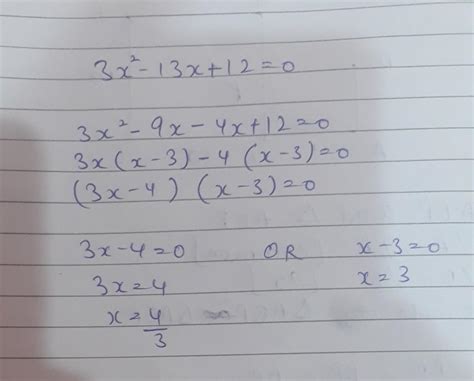 3x²-13x+12=0
3x²-9x-4x+12=0
3x(x-3)-4(x-3)=0
(3x-4)(x-3)=0
3x-4=0 OR x-3=0
3x=4 x=3
x=4/3